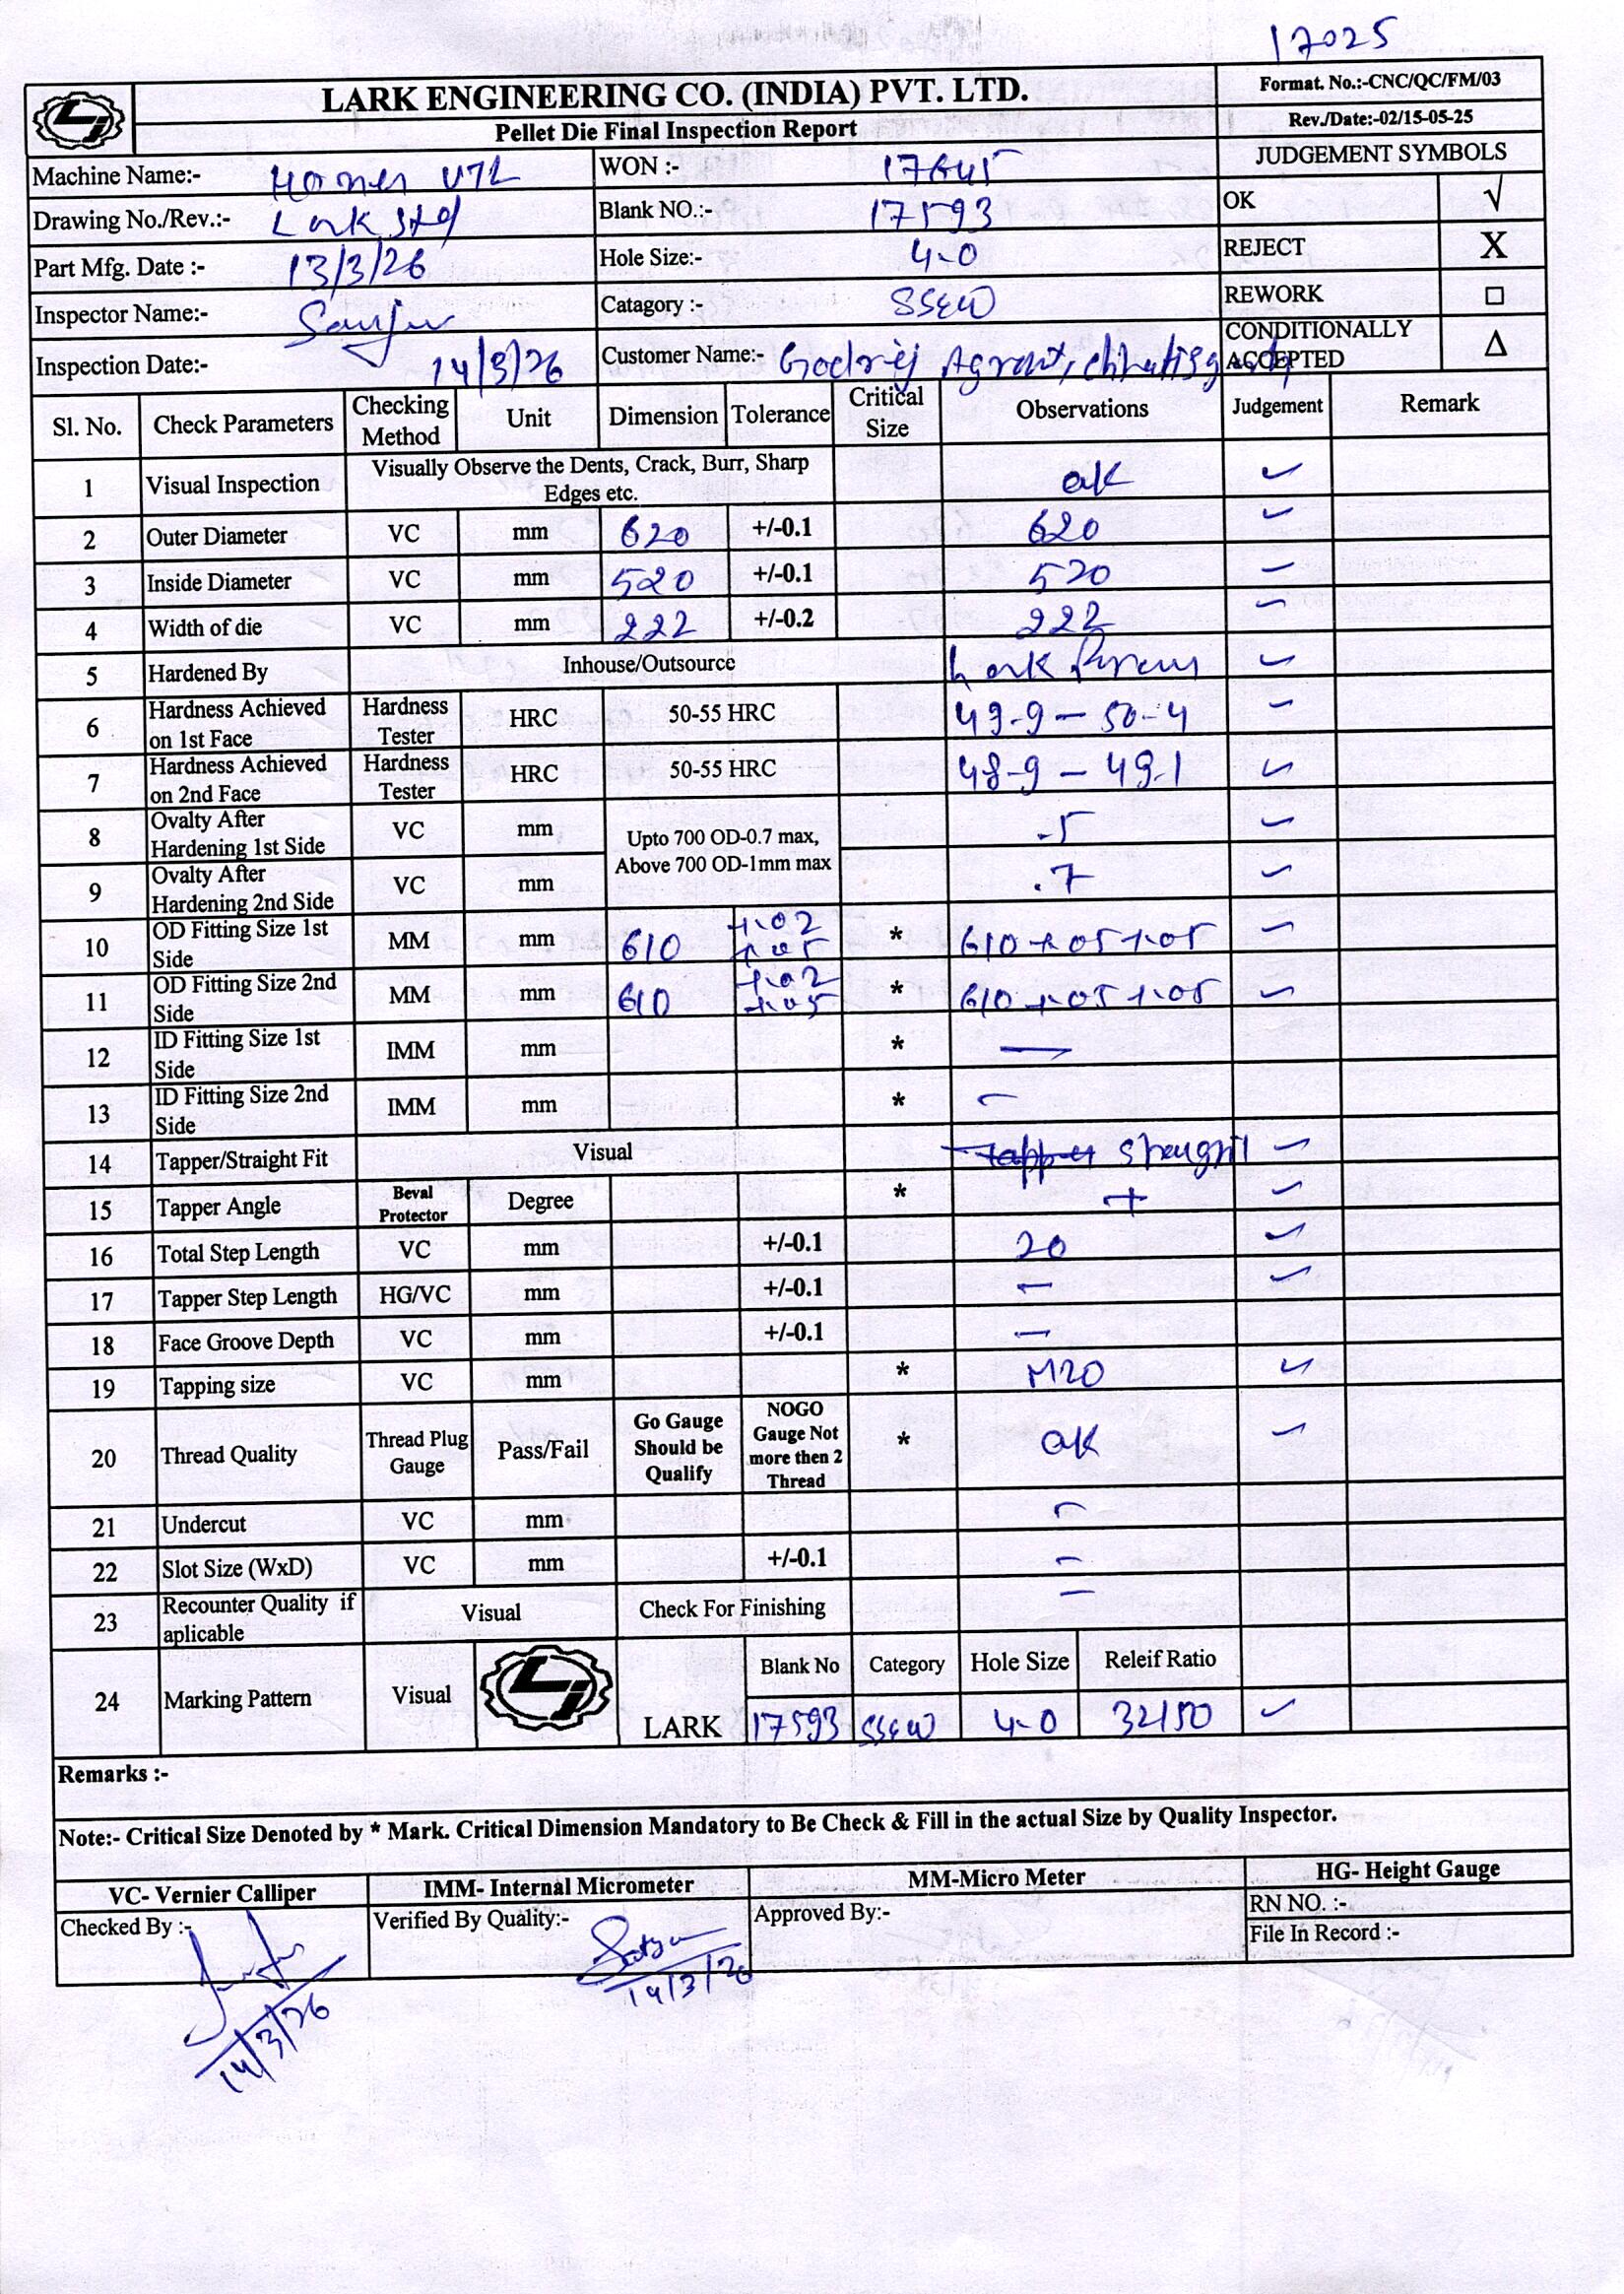 17025
LARK ENGINEERING CO. (INDIA) PVT. LTD.
Format. No.:-CNC/QC/FM/03
Pellet Die Final Inspection Report
Rev./Date:-02/15-05-25
Machine Name:- WON :- JUDGEMENT SYMBOLS
Drawing No./Rev.:- Lark Std Blank NO.:- 17593 OK √
Part Mfg. Date :- 13/3/26 Hole Size:- 4.0 REJECT X
Inspector Name:- Sanju Catagory :- SSEW REWORK □
Inspection Date:- 14/3/26 Customer Name:- Godrej CONDITIONALLY ACCEPTED Δ
Sl. No. Check Parameters Checking Method Unit Dimension Tolerance Critical Size Observations Judgement Remark
1 Visual Inspection Visually Observe the Dents, Crack, Burr, Sharp Edges etc. ok ✓
2 Outer Diameter VC mm 620 +/-0.1 620 ✓
3 Inside Diameter VC mm 520 +/-0.1 520 ✓
4 Width of die VC mm 222 +/-0.2 222 ✓
5 Hardened By Inhouse/Outsource Lark ✓
6 Hardness Achieved on 1st Face Hardness Tester HRC 50-55 HRC 49.9 - 50.4 ✓
7 Hardness Achieved on 2nd Face Hardness Tester HRC 50-55 HRC 48.9 - 49.1 ✓
8 Ovalty After Hardening 1st Side VC mm Upto 700 OD-0.7 max, Above 700 OD-1mm max .5 ✓
9 Ovalty After Hardening 2nd Side VC mm .7 ✓
10 OD Fitting Size 1st Side MM mm 610 +.02 +.05 * 610 +.05 +.05 ✓
11 OD Fitting Size 2nd Side MM mm 610 +.02 +.05 * 610 +.05 +.05 ✓
12 ID Fitting Size 1st Side IMM mm * —
13 ID Fitting Size 2nd Side IMM mm * —
14 Tapper/Straight Fit Visual ✓
15 Tapper Angle Beval Protector Degree * ✓
16 Total Step Length VC mm +/-0.1 20 ✓
17 Tapper Step Length HG/VC mm +/-0.1 — ✓
18 Face Groove Depth VC mm +/-0.1 —
19 Tapping size VC mm * M20 ✓
20 Thread Quality Thread Plug Gauge Pass/Fail Go Gauge Should be Qualify NOGO Gauge Not more then 2 Thread * ok ✓
21 Undercut VC mm —
22 Slot Size (WxD) VC mm +/-0.1 —
23 Recounter Quality if aplicable Visual Check For Finishing —
24 Marking Pattern Visual LARK Blank No Category Hole Size Releif Ratio
17593 SSEW 4.0 32/50 ✓
Remarks :-
Note:- Critical Size Denoted by * Mark. Critical Dimension Mandatory to Be Check & Fill in the actual Size by Quality Inspector.
VC- Vernier Calliper IMM- Internal Micrometer MM-Micro Meter HG- Height Gauge
Checked By :- Verified By Quality:- Approved By:- RN NO. :-
File In Record :-
14/3/26
14/3/26